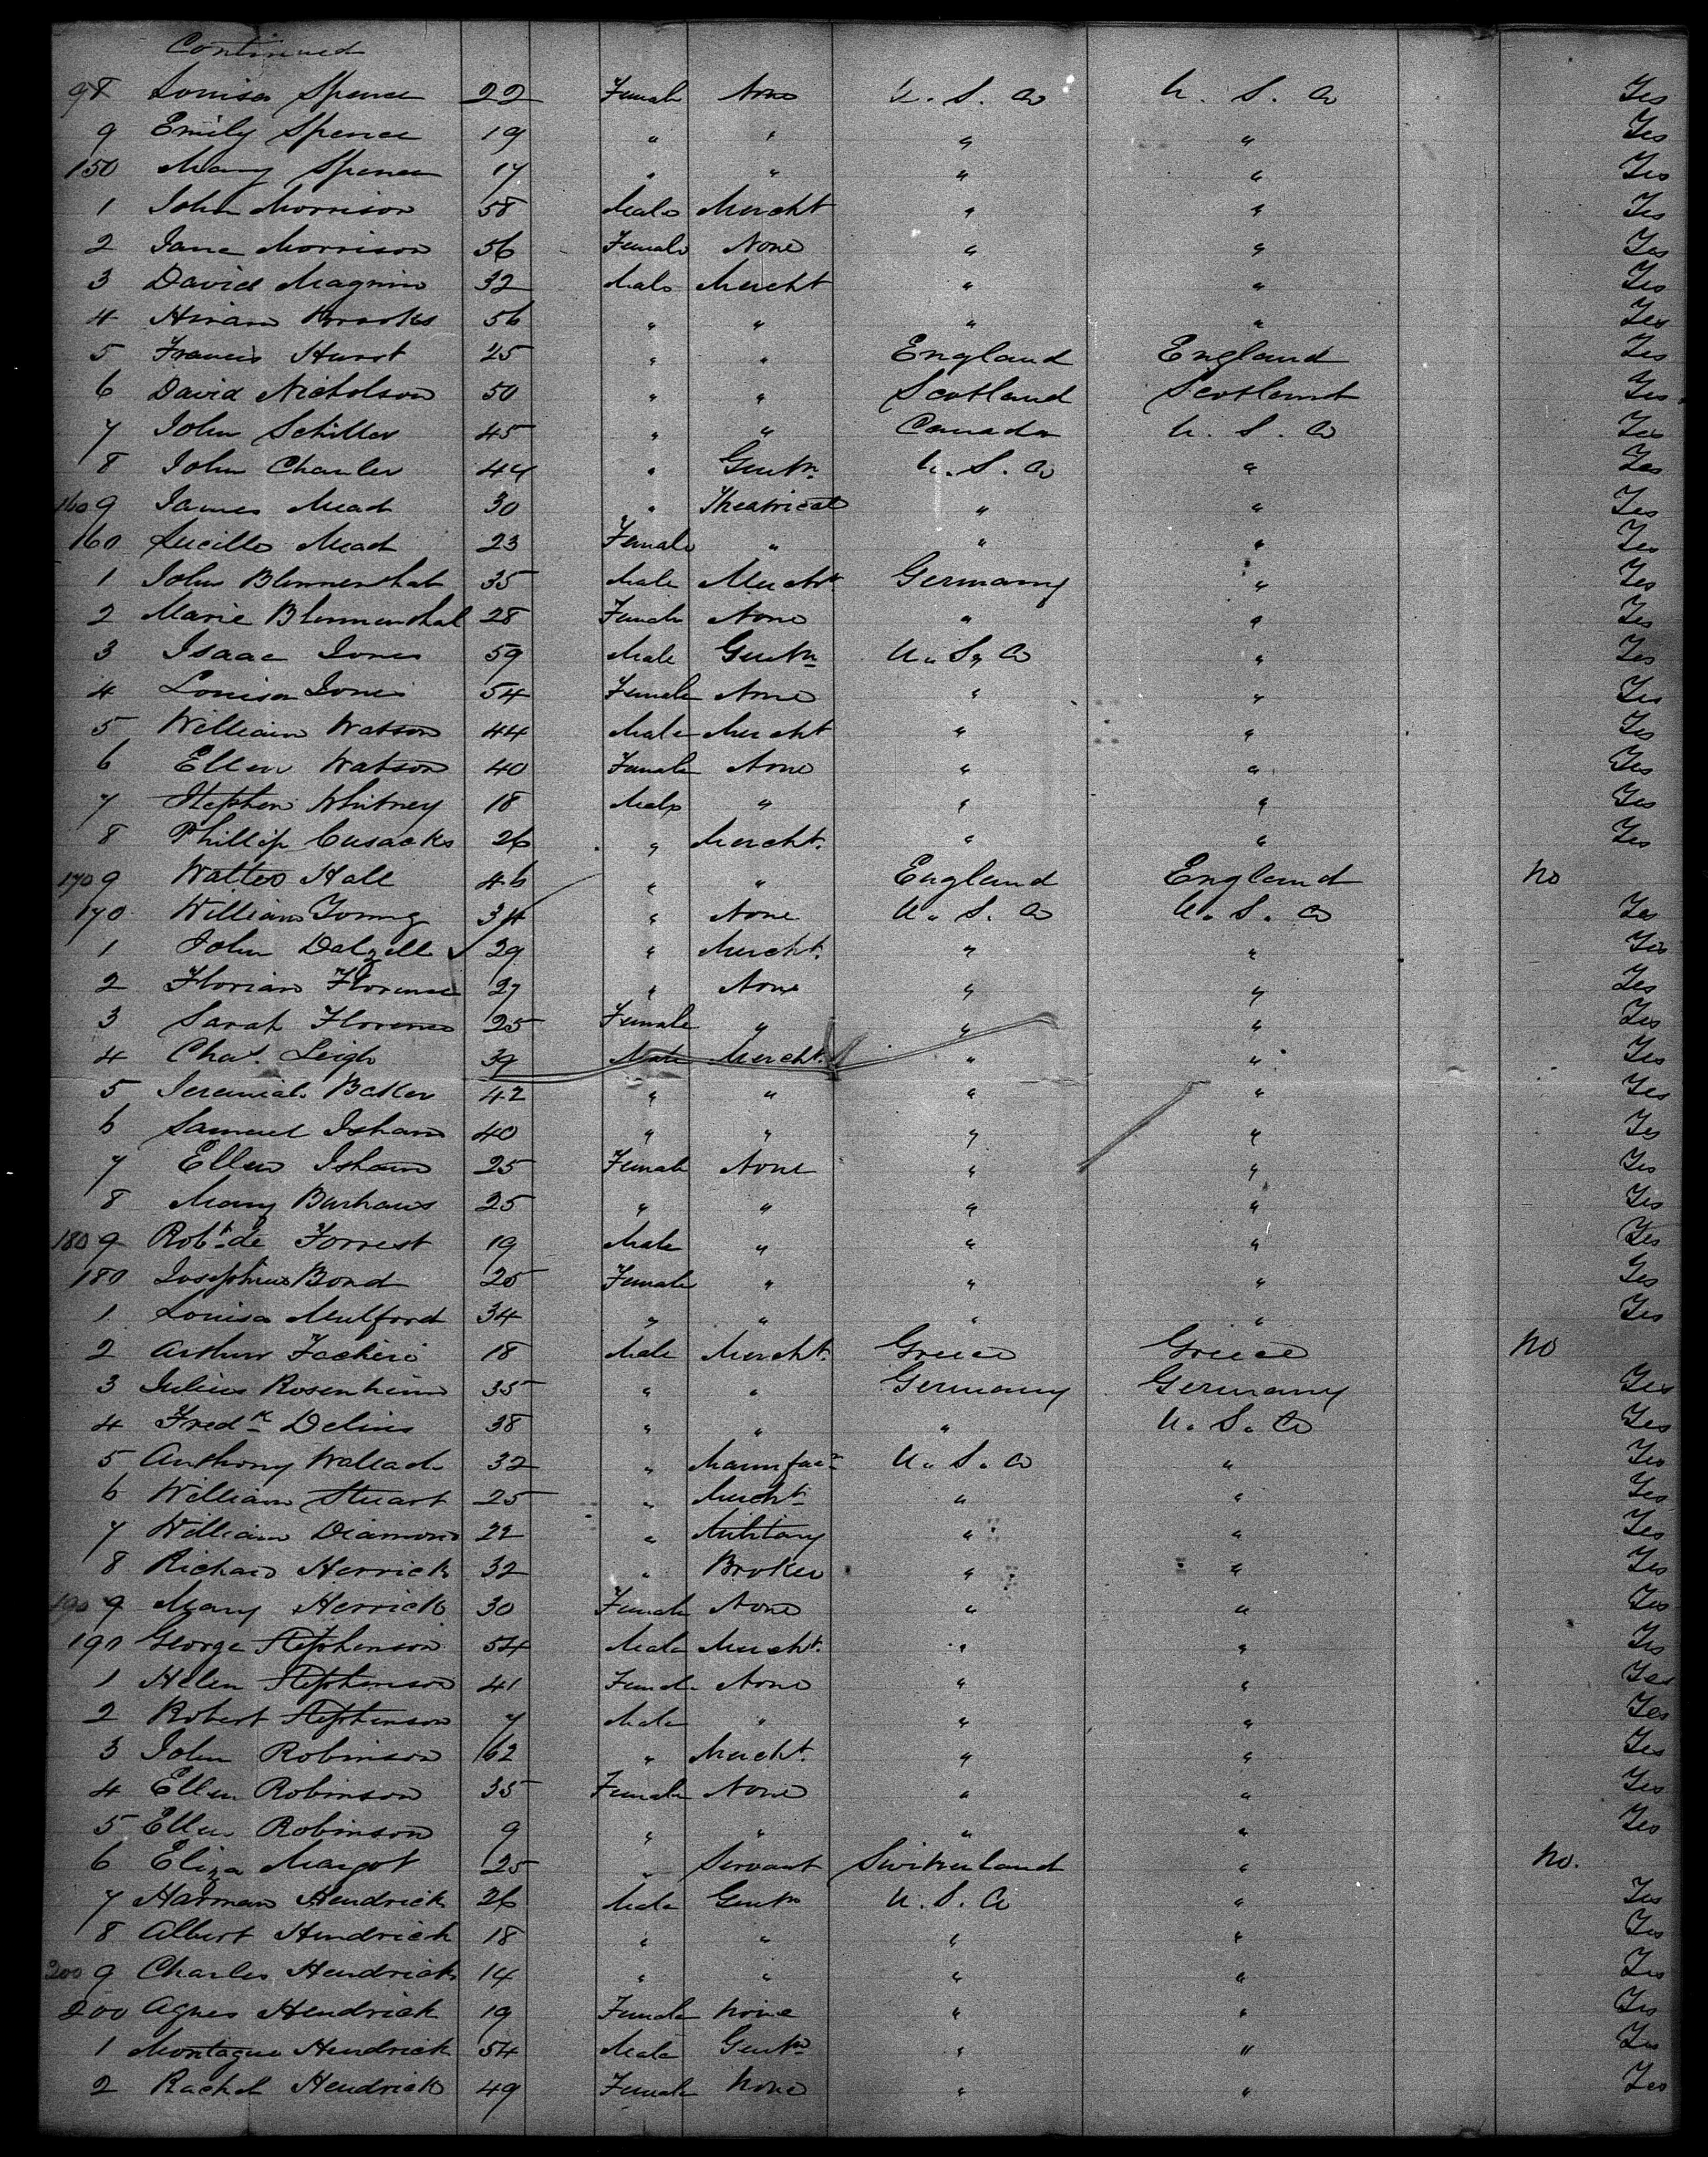 Continued
98 Louisa Spence 22 Female None U. S. A U. S. A Yes
9 Emily Spence 19 " " " " Yes
150 Mary Spence 17 " " " " Yes
1 John Morrison 58 Male Mercht " " Yes
2 Jane Morrison 56 Female None " " Yes
3 David Magnin 32 Male Mercht " " Yes
4 Hiram Brooks 56 " " " " Yes
5 Francis Hurst 25 " " England England Yes
6 David Nicholson 50 " " Scotland Scotland Yes
7 John Schiller 45 " " Canada U. S. A Yes
8 John Chanler 44 " Gentn U. S. A " Yes
160 9 James Mead 30 " Theatrical " " Yes
160 Lucille Mead 23 Female " " " Yes
1 John Blumenthal 35 Male Mercht Germany " Yes
2 Marie Blumenthal 28 Female None " " Yes
3 Isaac Jones 59 Male Gentn U. S. A " Yes
4 Louisa Jones 54 Female None " " Yes
5 William Watson 44 Male Mercht " " Yes
6 Ellen Watson 40 Female None " " Yes
7 Stephen Whitney 18 Male " " " Yes
8 Phillip Cusacks 26 " Mercht. " " Yes
170 9 Walter Hall 46 " " England England No
170 William Young 34 " None U. S. A U. S. A Yes
1 John Dalzell 29 " Mercht. " " Yes
2 Florian Florence 27 " None " " Yes
3 Sarah Florence 25 Female " " " Yes
4 Chas. Leigh 39 Male Mercht. " " Yes
5 Jeremiah Baker 42 " " " " Yes
6 Samuel Isham 40 " " " " Yes
7 Ellen Isham 25 Female None " " Yes
8 Mary Burhans 25 " " " " Yes
180 9 Robt de Forrest 19 Male " " " Yes
180 Josephine Bond 25 Female " " " Yes
1 Louisa Mulford 34 " " " " Yes
2 Arthur 18 Male Mercht. Greece Greece No
3 Julius Rosenheim 35 " " Germany Germany Yes
4 Fredk Delius 38 " " " U. S. A Yes
5 Anthony Wallach 32 " Manufacr U. S. A " Yes
6 William Stuart 25 " Mercht " " Yes
7 William Diamond 22 " Military " " Yes
8 Richard Herrick 32 " Broker " " Yes
190 9 Mary Herrick 30 Female None " " Yes
190 George Stephenson 54 Male Mercht. " " Yes
1 Helen Stephenson 41 Female None " " Yes
2 Robert Stephenson 7 Male " " " Yes
3 John Robinson 62 " Mercht. " " Yes
4 Ellen Robinson 35 Female None " " Yes
5 Ellen Robinson 9 " " " " Yes
6 Eliza Margot 25 " Servant Switzerland " No.
7 Harman Hendrick 26 Male Gentn U. S. A " Yes
8 Albert Hendrick 18 " " " " Yes
200 9 Charles Hendrick 14 " " " " Yes
200 Agnes Hendrick 19 Female None " " Yes
1 Montague Hendrick 54 Male Gentn " " Yes
2 Rachel Hendrick 49 Female None " " Yes